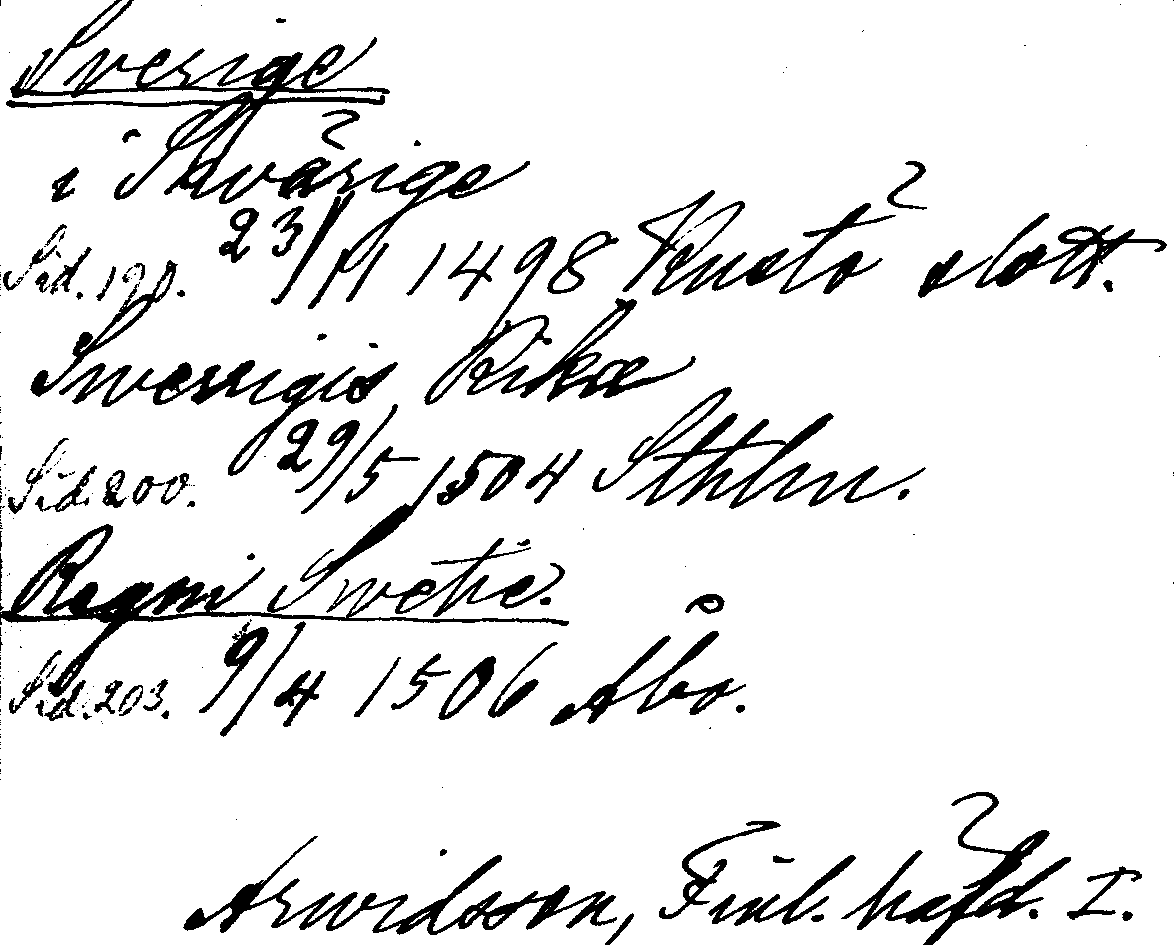 Sverige
i Swärige
Sid. 190. 23/11 1498 Kustö slott.
Swerrigis Rike
Sid. 200. 29/5 1504 Sthlm.
Regni Swetie.
Sid. 203. 9/4 1506 Åbo.
Arwidsson, Finl. häfd. I.